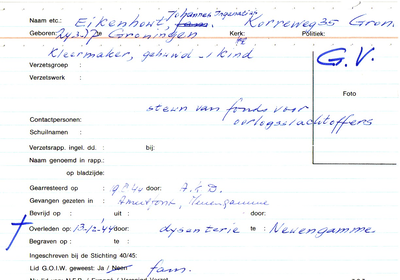 Johannes Ingenatius
Naam etc.: Eikenhout, Korreweg 35 Gron.
Geboren: 24-3-17 te Groningen Kerk: RK Politiek:
Kleermaker, gehuwd 1 kind
G.V.
Verzetsgroep :
Verzetswerk :
Foto
steun van fonds voor
oorlogsslachtoffers
Contactpersonen:
Schuilnamen :
Verzetsrapp. ingel. dd. : bij:
Naam genoemd in rapp.:
op bladzijde:
Gearresteerd op : door:
Gevangen gezeten in : Amersfoort, Neuengamme
Bevrijd op : uit : door:
Overleden op : 13-12-44 door: dysenterie te : Neuengamme
Begraven op : te :
Ingeschreven bij de Stichting 40/45:
Lid G.O.I.W. geweest: Ja / Neen fam.